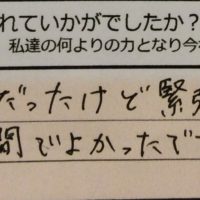 れていかがでしたか？
私達の何よりの力となり今
だったけど緊
間でよかったで